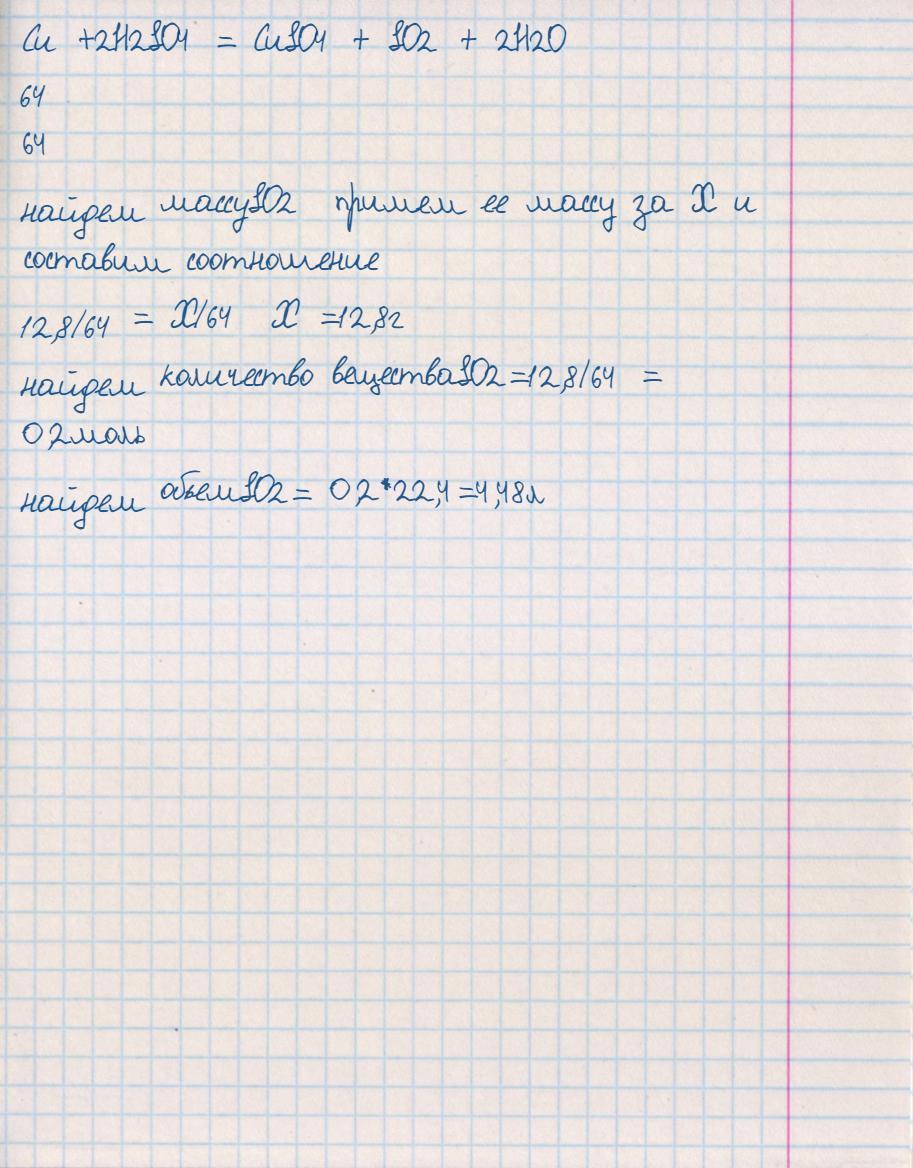 Cu +2H2SO4 = CuSO4 + SO2 + 2H2O
64
64
найдем массуSO2 примем ее массу за X и
составим соотношение
12,8/64 = X/64 X =12,8г
найдем количество веществаSO2=12,8/64 =
0,2моль
найдем объемSO2= 0,2*22,4=4,48л